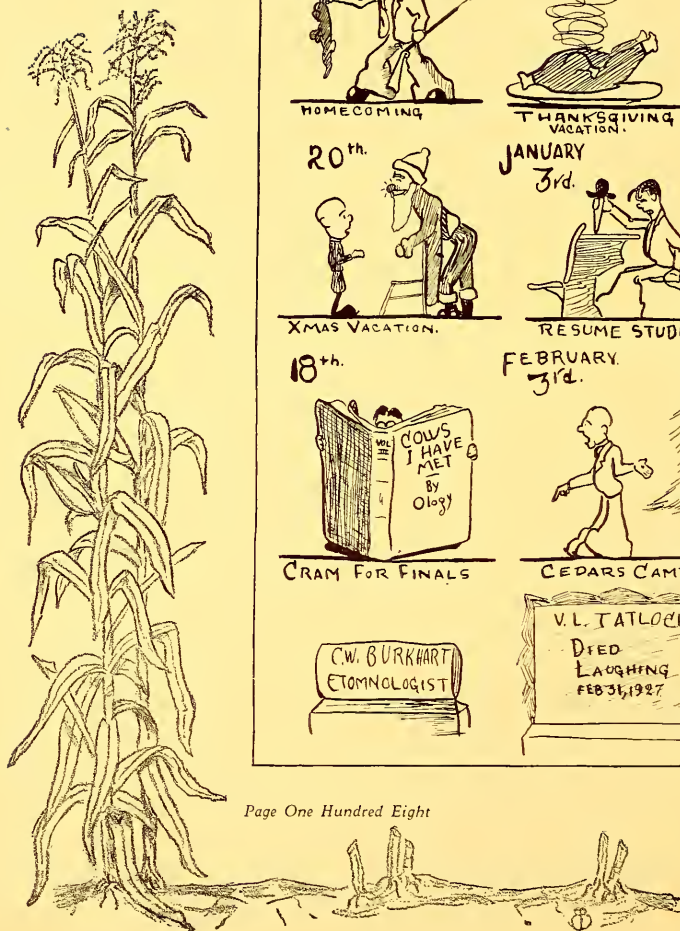 HOMECOMING
THANKSGIVING
VACATION.
20th.
JANUARY
3rd.
XMAS VACATION.
RESUME STUD
18th.
FEBRUARY.
3rd.
VOL
III
COWS
I HAVE
MET
By
Ology
CRAM FOR FINALS
CEDARS CAM
C.W. BURKHART
ETOMNOLOGIST
V.L. TATLOC
DIED
LAUGHING
FEB 31, 1927
Page One Hundred Eight